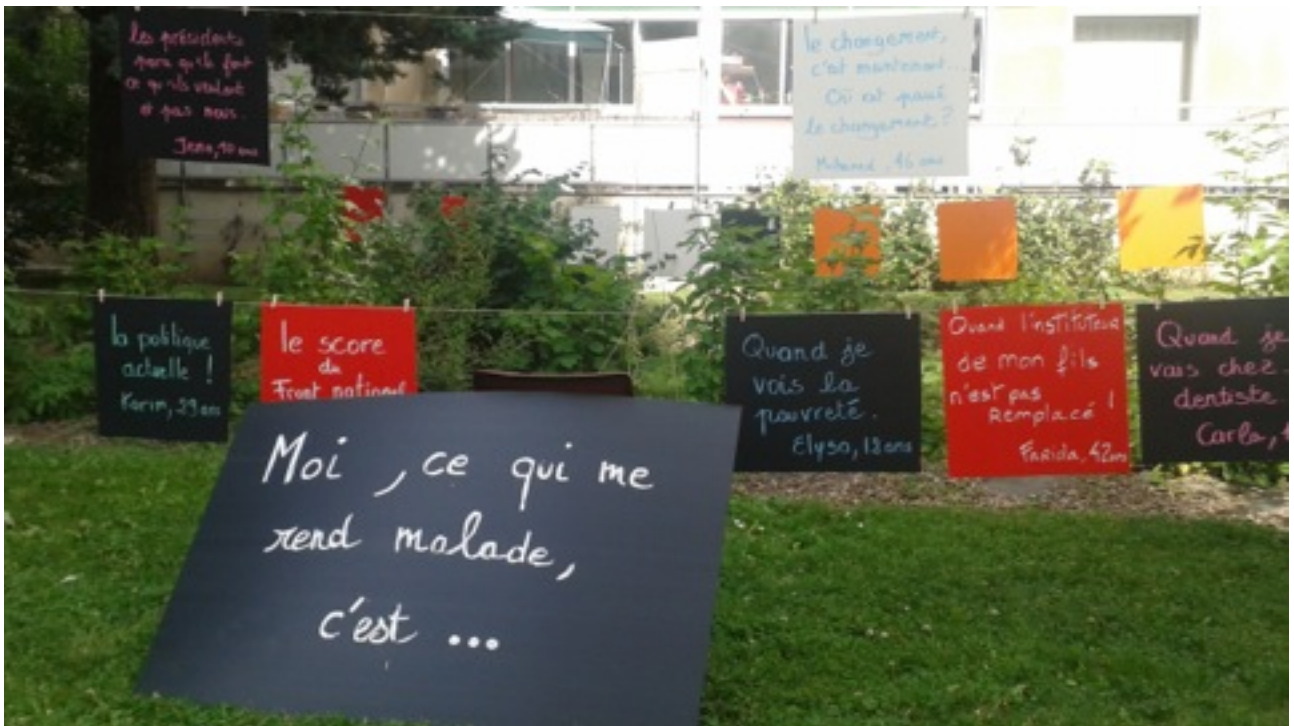 les présidents
parce qu'ils font
ce qu'ils veulent
et pas nous.
10 ans
le changement,
c'est maintenant...
Où est passé
le changement?
Mohamed, 46 ans
la politique
actuelle !
Karim, 29 ans
le score
du
Front national
Quand je
vois la
pauvreté.
Elysa, 12 ans
Quand l'instituteur
de mon fils
n'est pas
Remplacé !
Farida, 42 ans
Quand je
vais chez
dentiste
Carla,
Moi, ce qui me
rend malade,
c'est ...